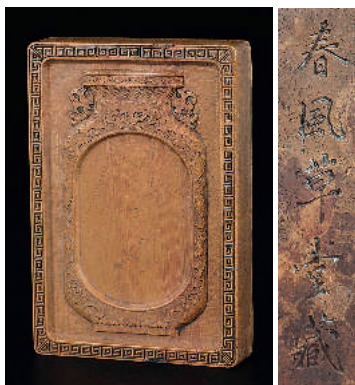 春風草堂藏